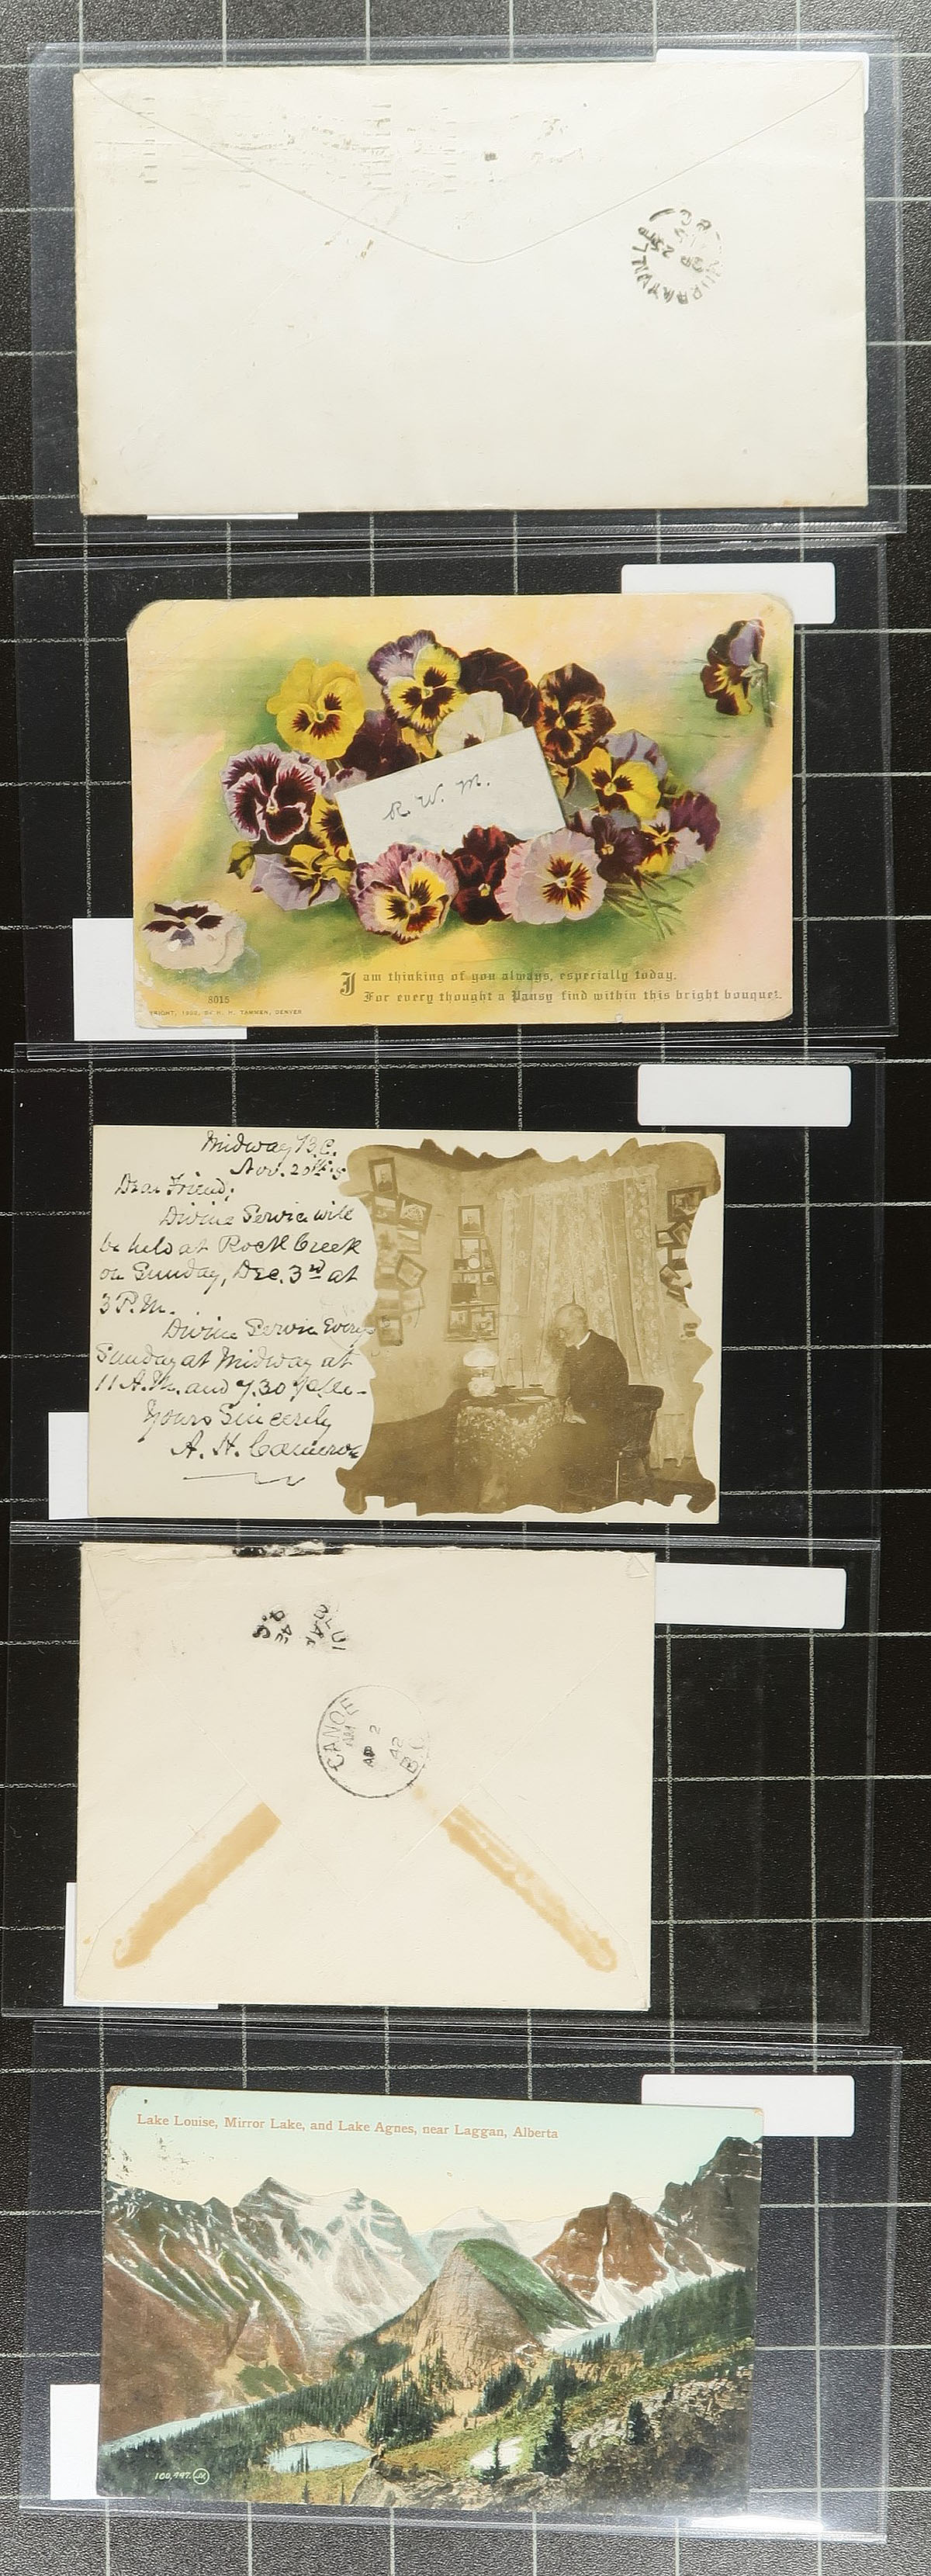 R. W. M.
I am thinking of you always, especially today.
For every thought a Pansy find within this bright bouquet.
8015
RIGHT, 1906, BY H. H. TAMMEN, DENVER
Midway B.C.
Nov. 20th
Dear Friend:
Divine Service will
be held at Rock Creek
on Sunday, Dec. 3rd at
3 P.M.
Divine Service Every
Sunday at Midway at
11 A.M. and 7.30
Yours Sincerely
A. H. Cameron
CANOE
AM
AP 2
42
B.C.
Lake Louise, Mirror Lake, and Lake Agnes, near Laggan, Alberta
100,447. JV